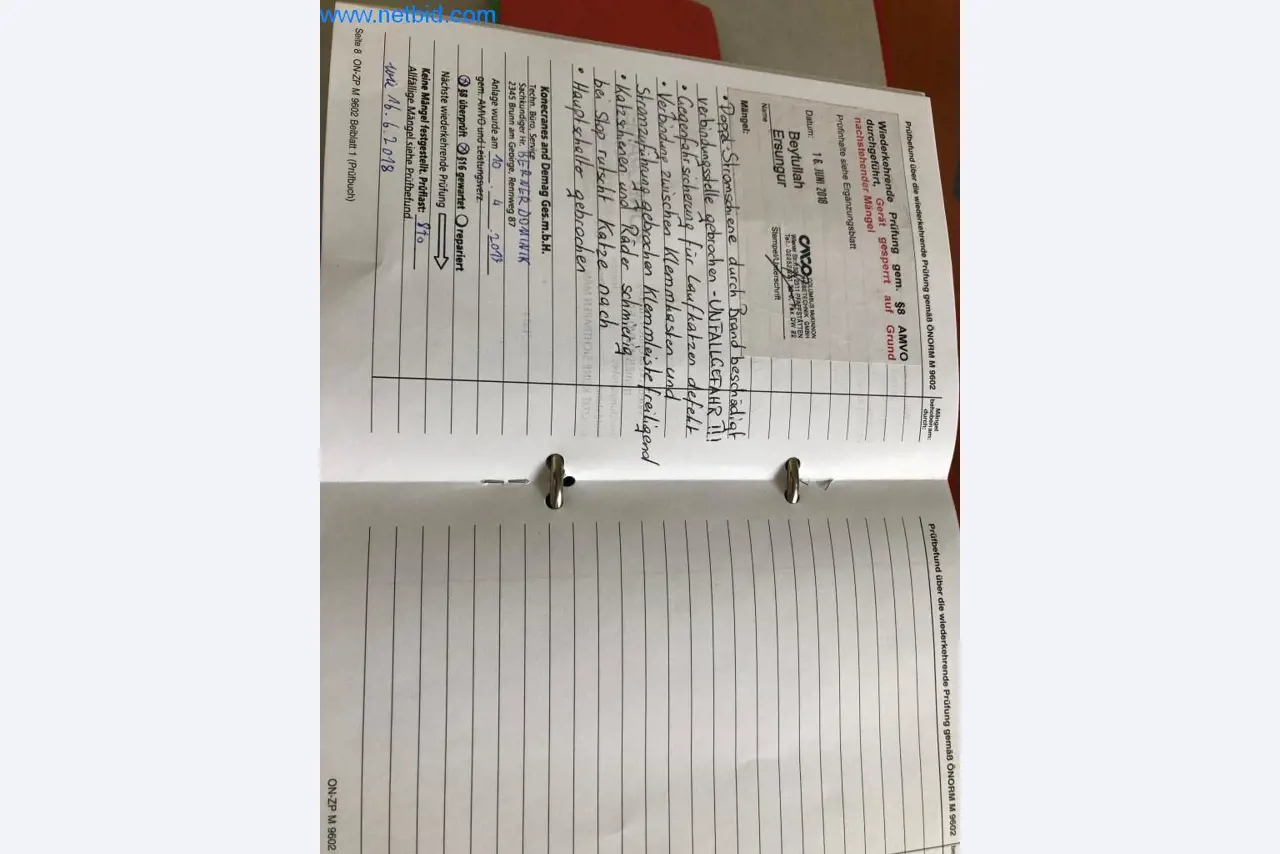 www.netbid.com
Prüfbefund über die wiederkehrende Prüfung gemäß ÖNORM M 9602
Mängel
behoben am:
durch:
Wiederkehrende Prüfung gem. §8 AMVO
durchgeführt, Gerät gesperrt auf Grund
nachstehender Mängel
Prüfinhalte siehe Ergänzungsblatt
Datum: 16. JUNI 2018
Beytullah
Ersungur
Name
COLUMBUS McKINNON
Stempel/Unterschrift
Mängel:
• Doppl. Stromschiene durch Brand beschädigt
verbindungsstelle gebrochen - UNFALLGEFAHR!!!
• Gegenfahrsicherung für Laufkatzen defekt
• Verbindung zwischen Klemmkasten und
Stromzuführung gebrochen Klemmleiste freiligend
• Katzschienen und Räder schmierig
bei Stop rutscht Katze nach
• Hauptschalter gebrochen
Konecranes and Demag Ges.m.b.H.
Techn. Büro, Service
Sachkundiger Hr. BERNER DOMINIK
2345 Brunn am Gebirge, Rennweg 87
Anlage wurde am 10. 4. 2017
gem. AMVO und Leistungsverz.
§8 überprüft §16 gewartet repariert
Nächste wiederkehrende Prüfung
Keine Mängel festgestellt. Prüflast:
Allfällige Mängel siehe Prüfbefund
16.6.2018
Seite 8 ON-ZP M 9602 Beiblatt 1 (Prüfbuch)
Prüfbefund über die wiederkehrende Prüfung gemäß ÖNORM M 9602
ON-ZP M 9602